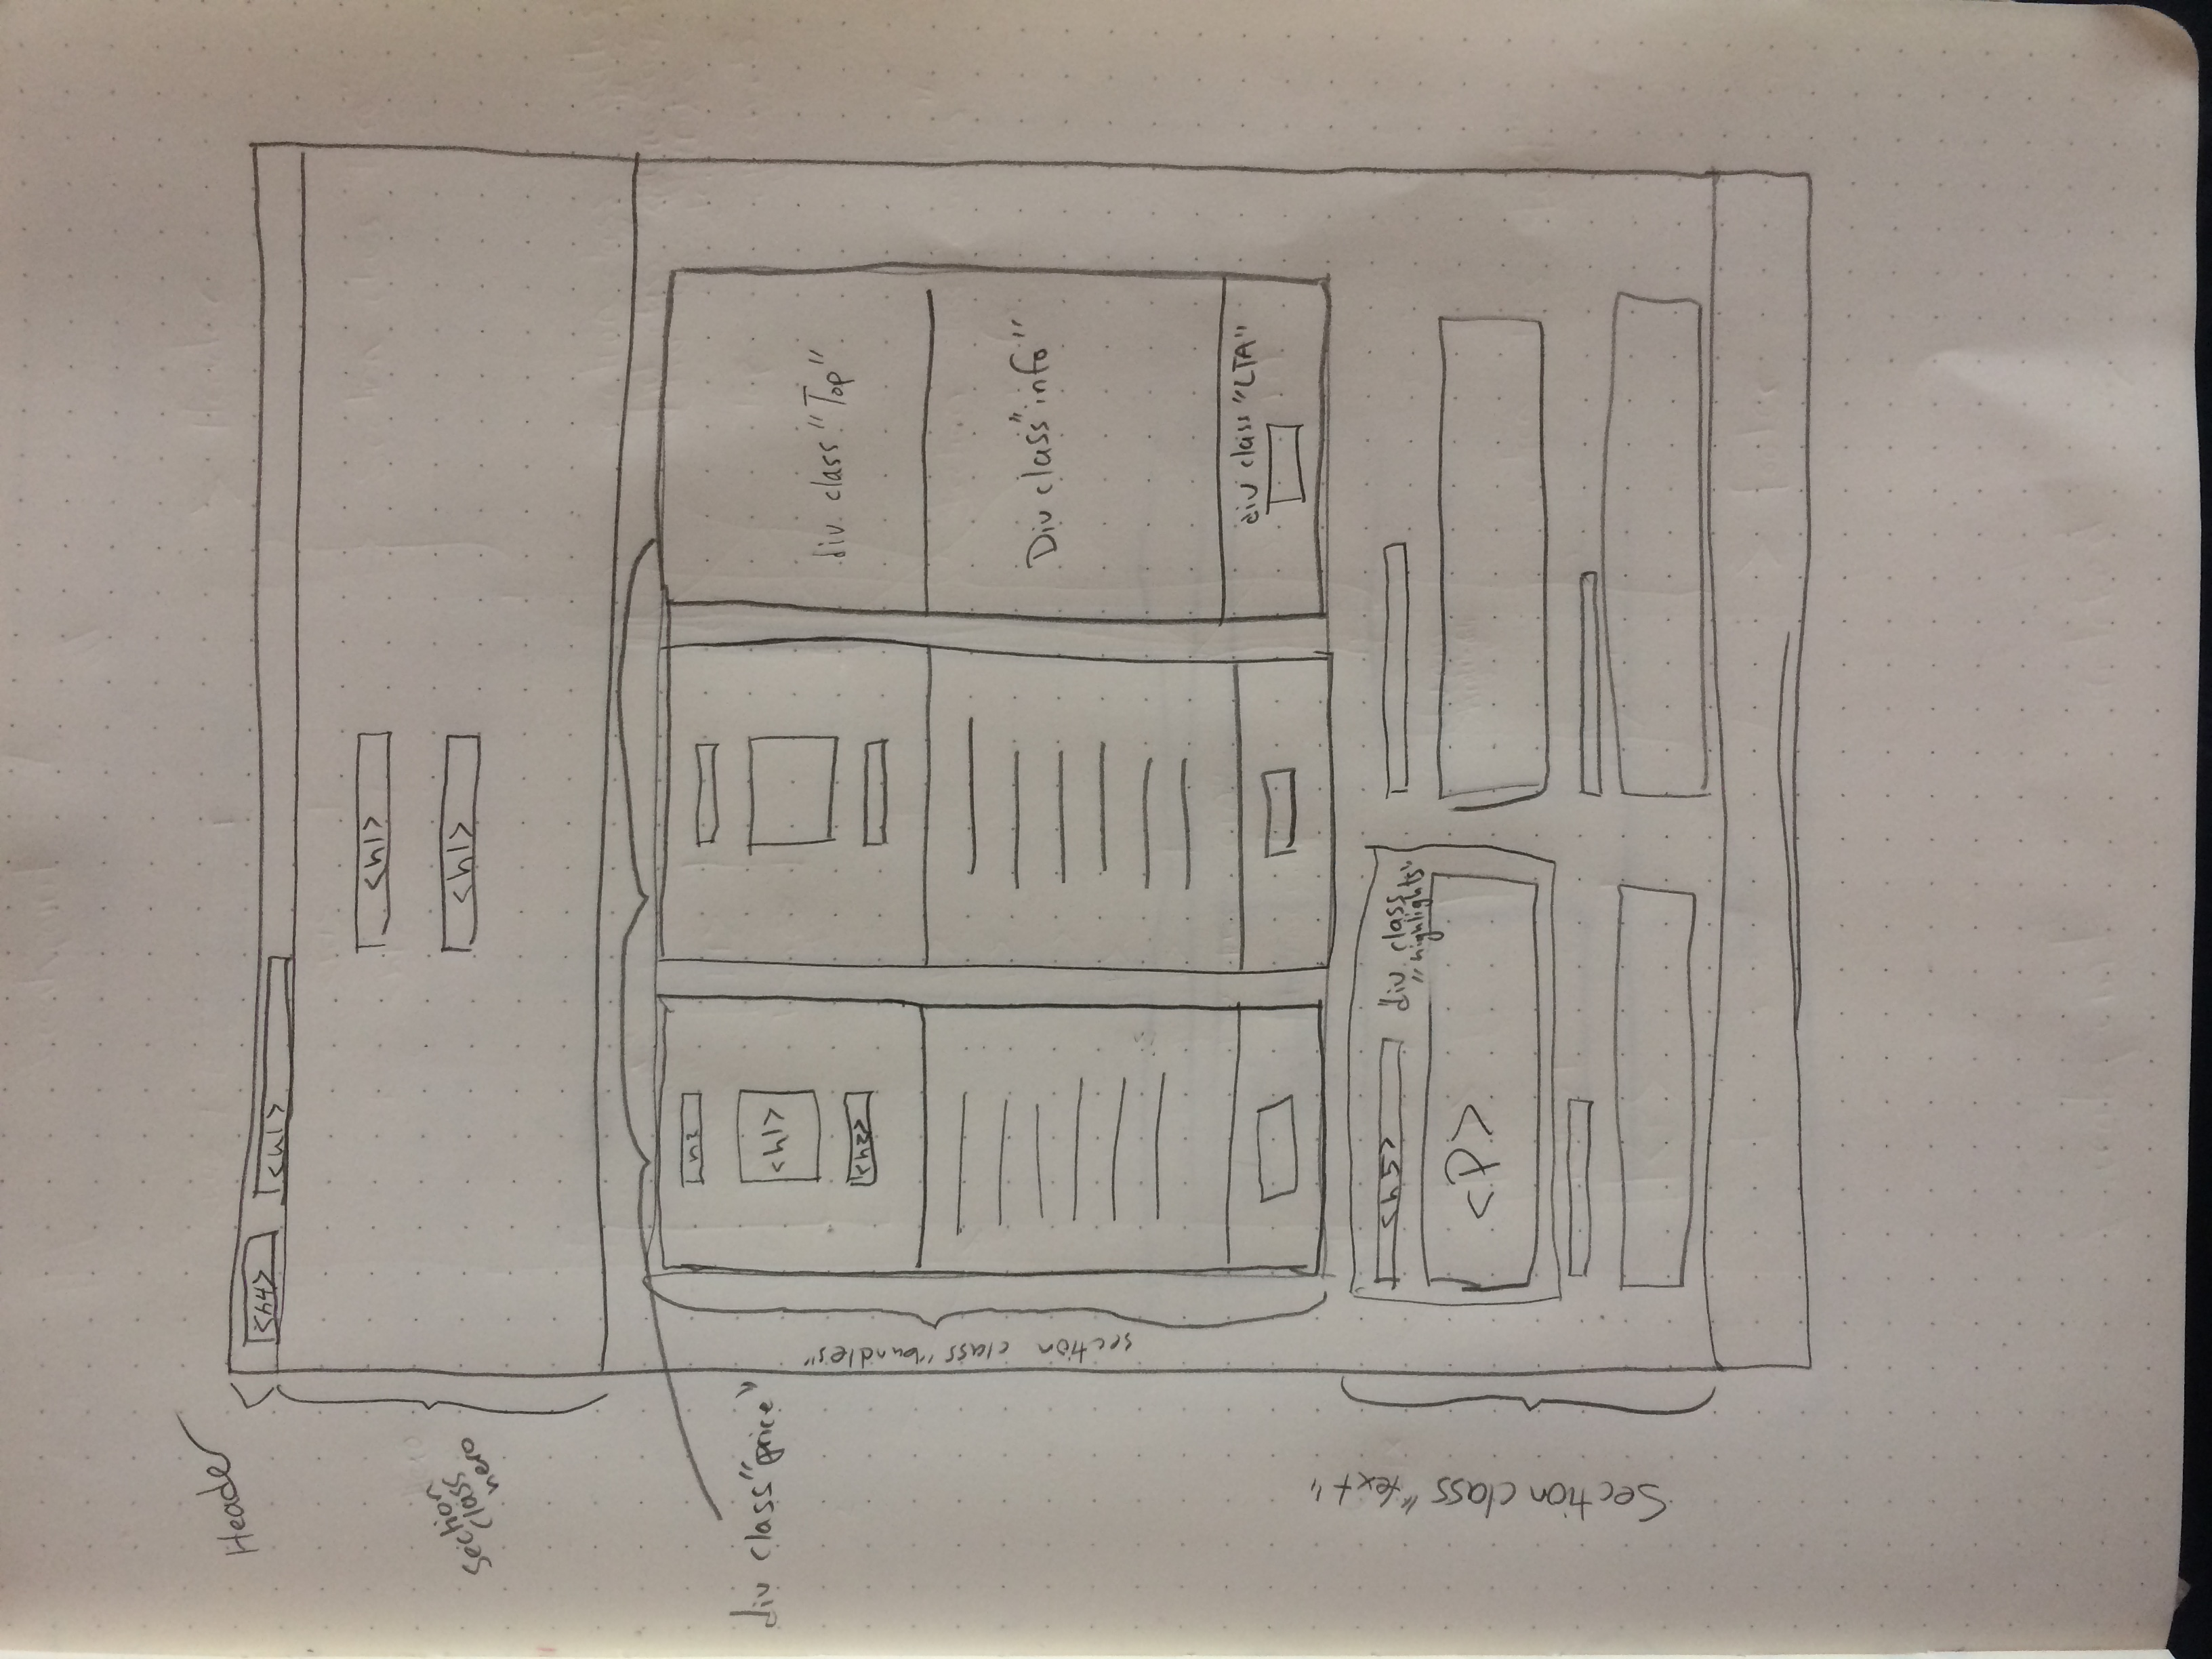 Header
<h4>
<h1>
<h1>
<h1>
Section
class
hero
div class "price"
section class "bundles"
<h1>
<h2>
div class "Top"
Div class "info"
div class "CTA"
Section class "text"
<h5>
div class
"highlights"
<P>